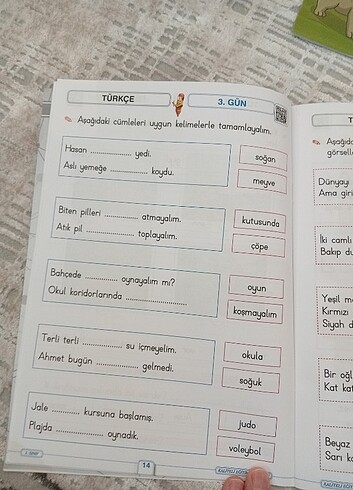 TÜRKÇE
3. GÜN
Aşağıdaki cümleleri uygun kelimelerle tamamlayalım.
Hasan .................. yedi.
Aslı yemeğe .................. koydu.
soğan
meyve
Biten pilleri .................. atmayalım.
Atık pil .................. toplayalım.
kutusunda
çöpe
Bahçede .................. oynayalım mı?
Okul koridorlarında ..................
oyun
koşmayalım
Terli terli .................. su içmeyelim.
Ahmet bugün .................. gelmedi.
okula
soğuk
Jale .................. kursuna başlamış.
Plajda .................. oynadık.
judo
voleybol
14
T
Dünyayı
Ama giri
İki camlı
Bakıp du
Yeşil m
Kırmızı
Siyah d
Bir oğl
Kat kat
Beyaz
Sarı ka